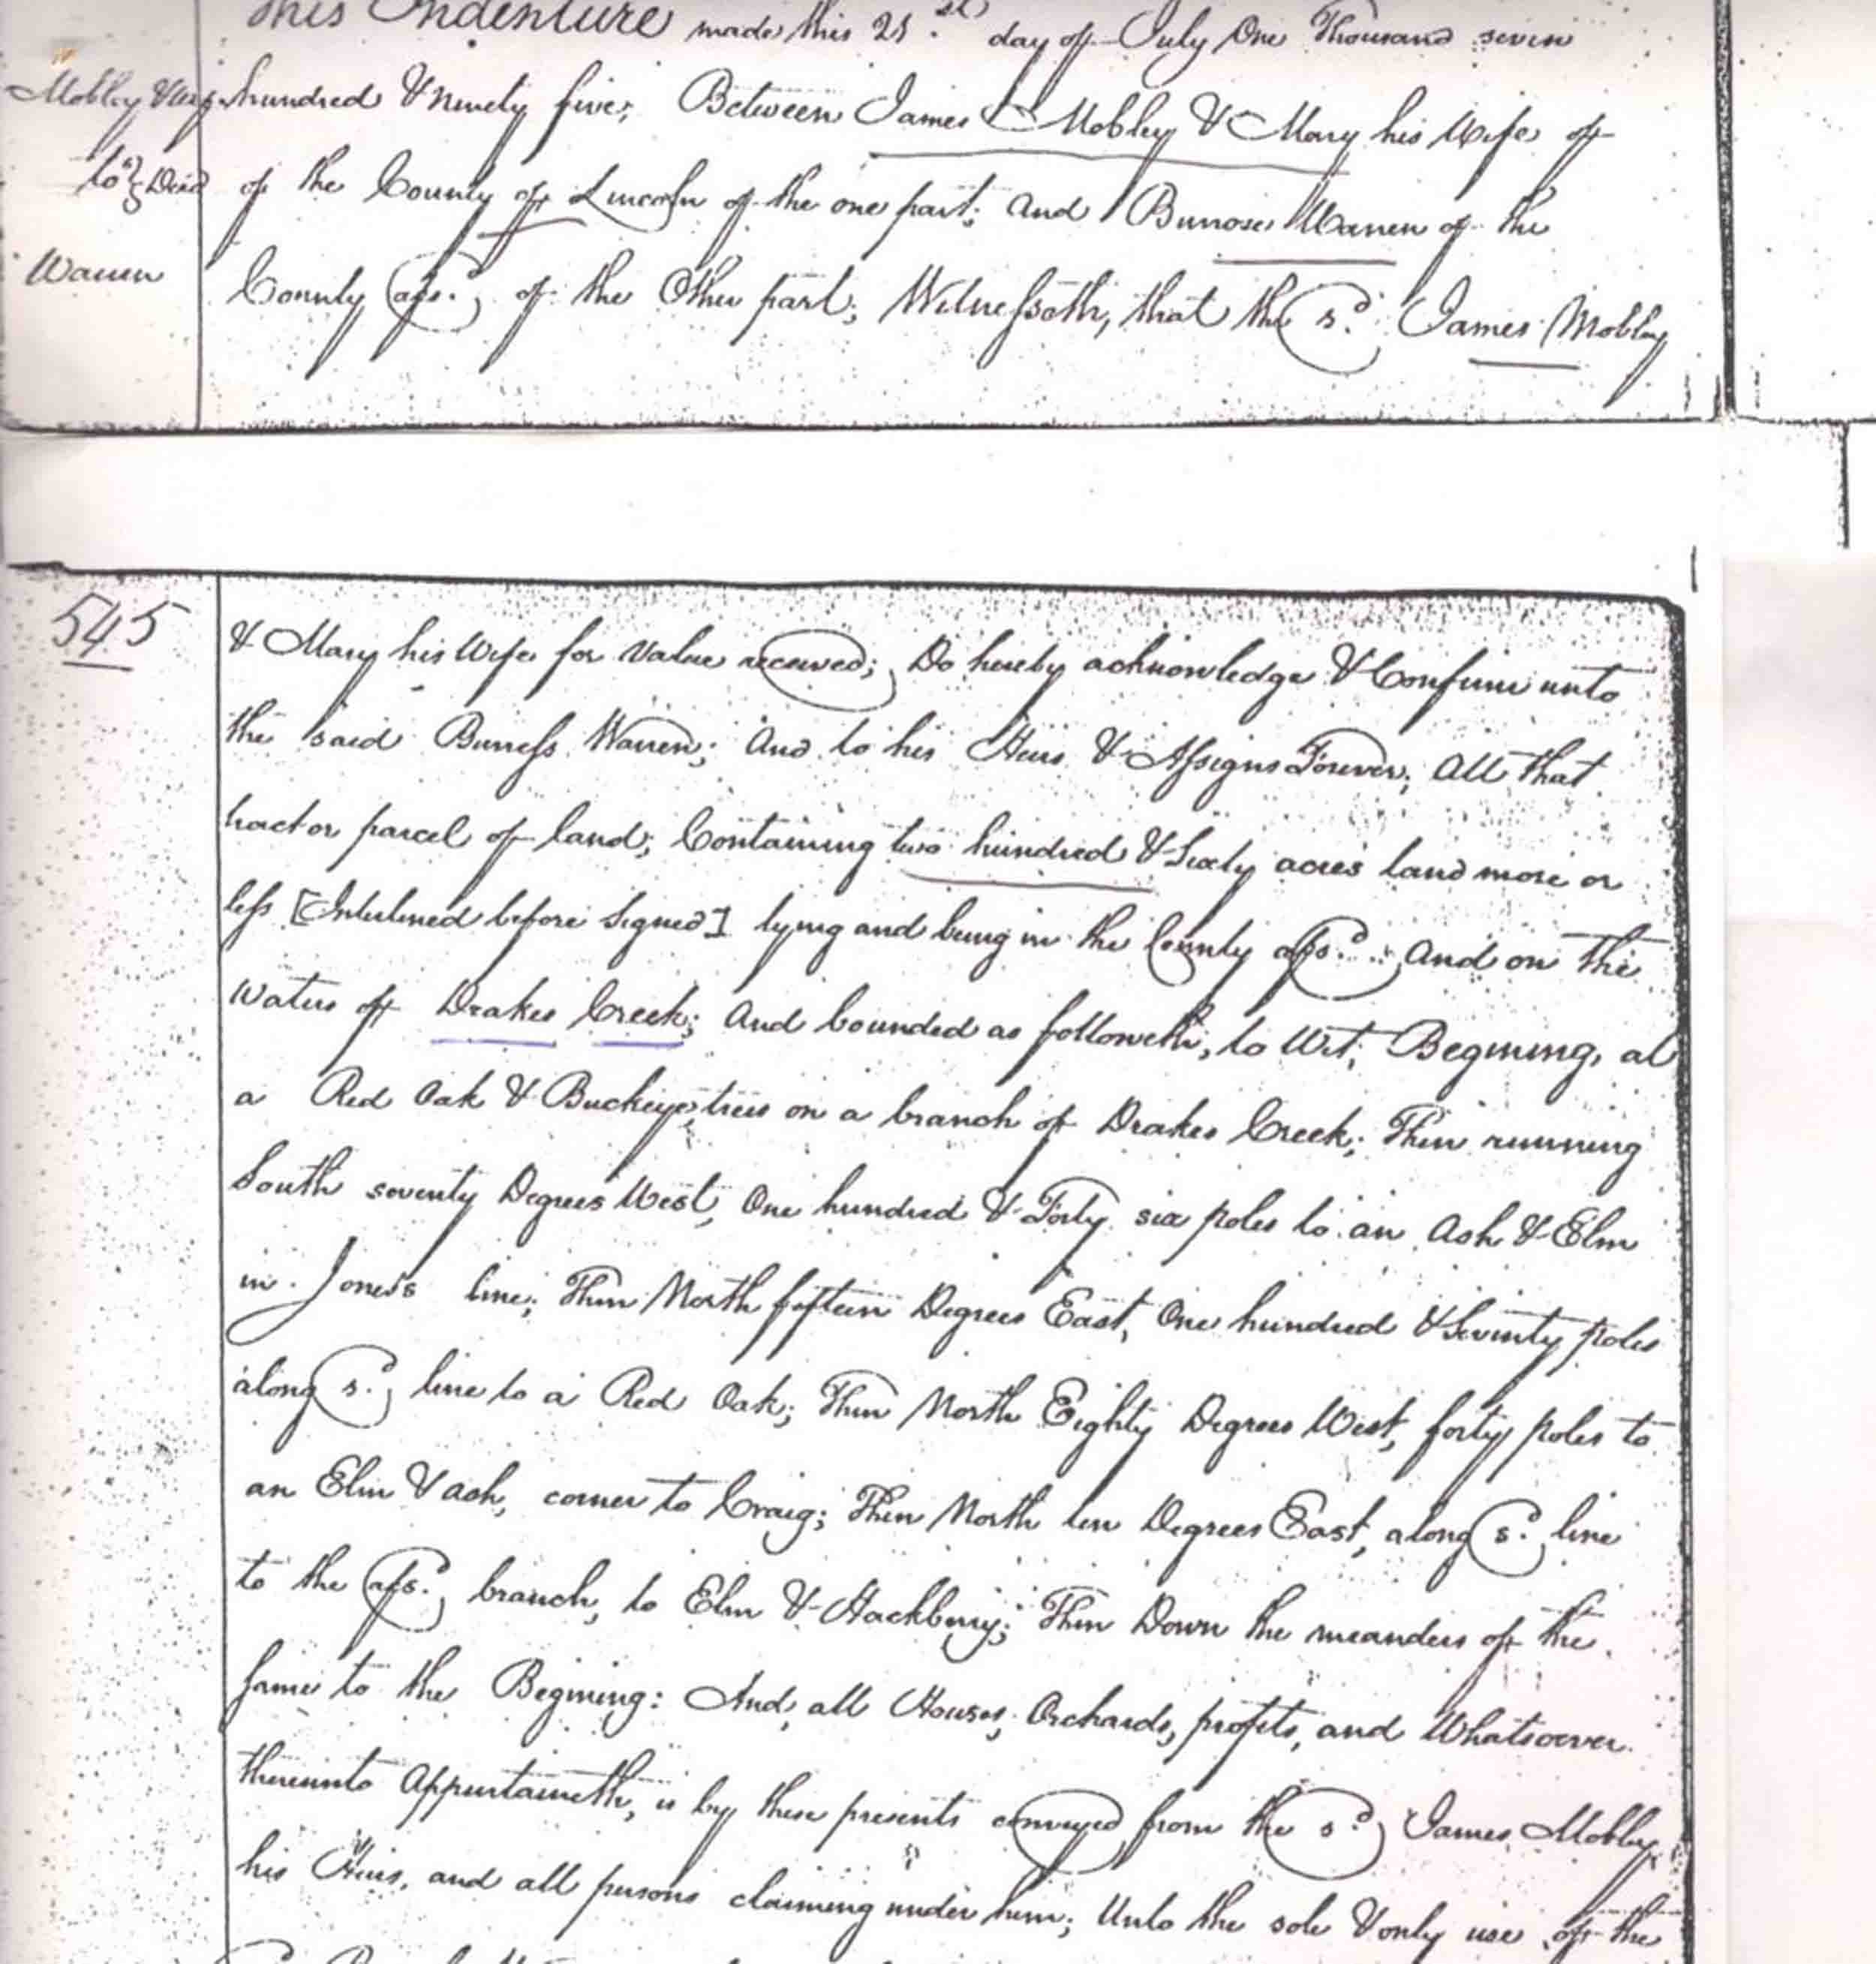 This Indenture made this 21st day of July One Thousand seven
Mobley & Uxr hundred & ninety five; Between James Mobley & Mary his Wife of
to } Deed of the County of Lincoln of the one part; And Burross Warren of the
Warren County afs.d of the Other part; Witnesseth, that the s.d James Mobley
545
& Mary his Wife for Value received; Do hereby acknowledge & Confirm unto
the said Burress Warren; And to his Heirs & Assigns Forever; All that
tract or parcel of land; Containing two hundred & Sixty acres land more or
less [Interlined before Signed] lying and being in the County afs.d; And on the
Waters of Drakes Creek; And bounded as followeth, to Wit; Begining, at
a Red Oak & Buckeye trees on a branch of Drakes Creek; Then running
South seventy Degrees West, One hundred & Forty six poles to an Ash & Elm
in Jones's line; Then North fifteen Degrees East, One hundred & Seventy poles
along s.d line to a Red Oak; Then North Eighty Degrees West, forty poles to
an Elm & ash, corner to Craig; Then North ten Degrees East, along s.d line
to the afs.d branch, to Elm & Hackberry; Then Down the meanders of the
same to the Begining: And, all Houses, Orchards, profits, and Whatsoever
thereunto Appertaineth, is by these presents conveyed from the s.d James Mobley
his Heirs, and all persons claiming under him; Unto the sole & only use of the